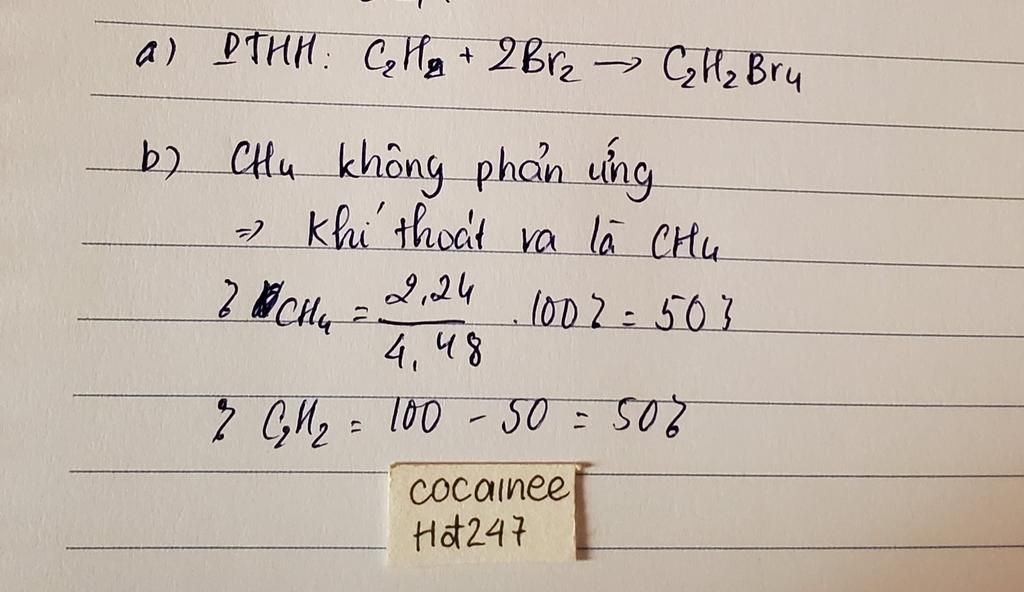 a) PTHH: C₂H₂ + 2Br₂ → C₂H₂Br₄
b) CH₄ không phản ứng
⇒ Khí thoát ra là CH₄
% CH₄ = 2,24 / 4,48 . 100% = 50%
% C₂H₂ = 100 - 50 = 50%
cocainee
Hot247